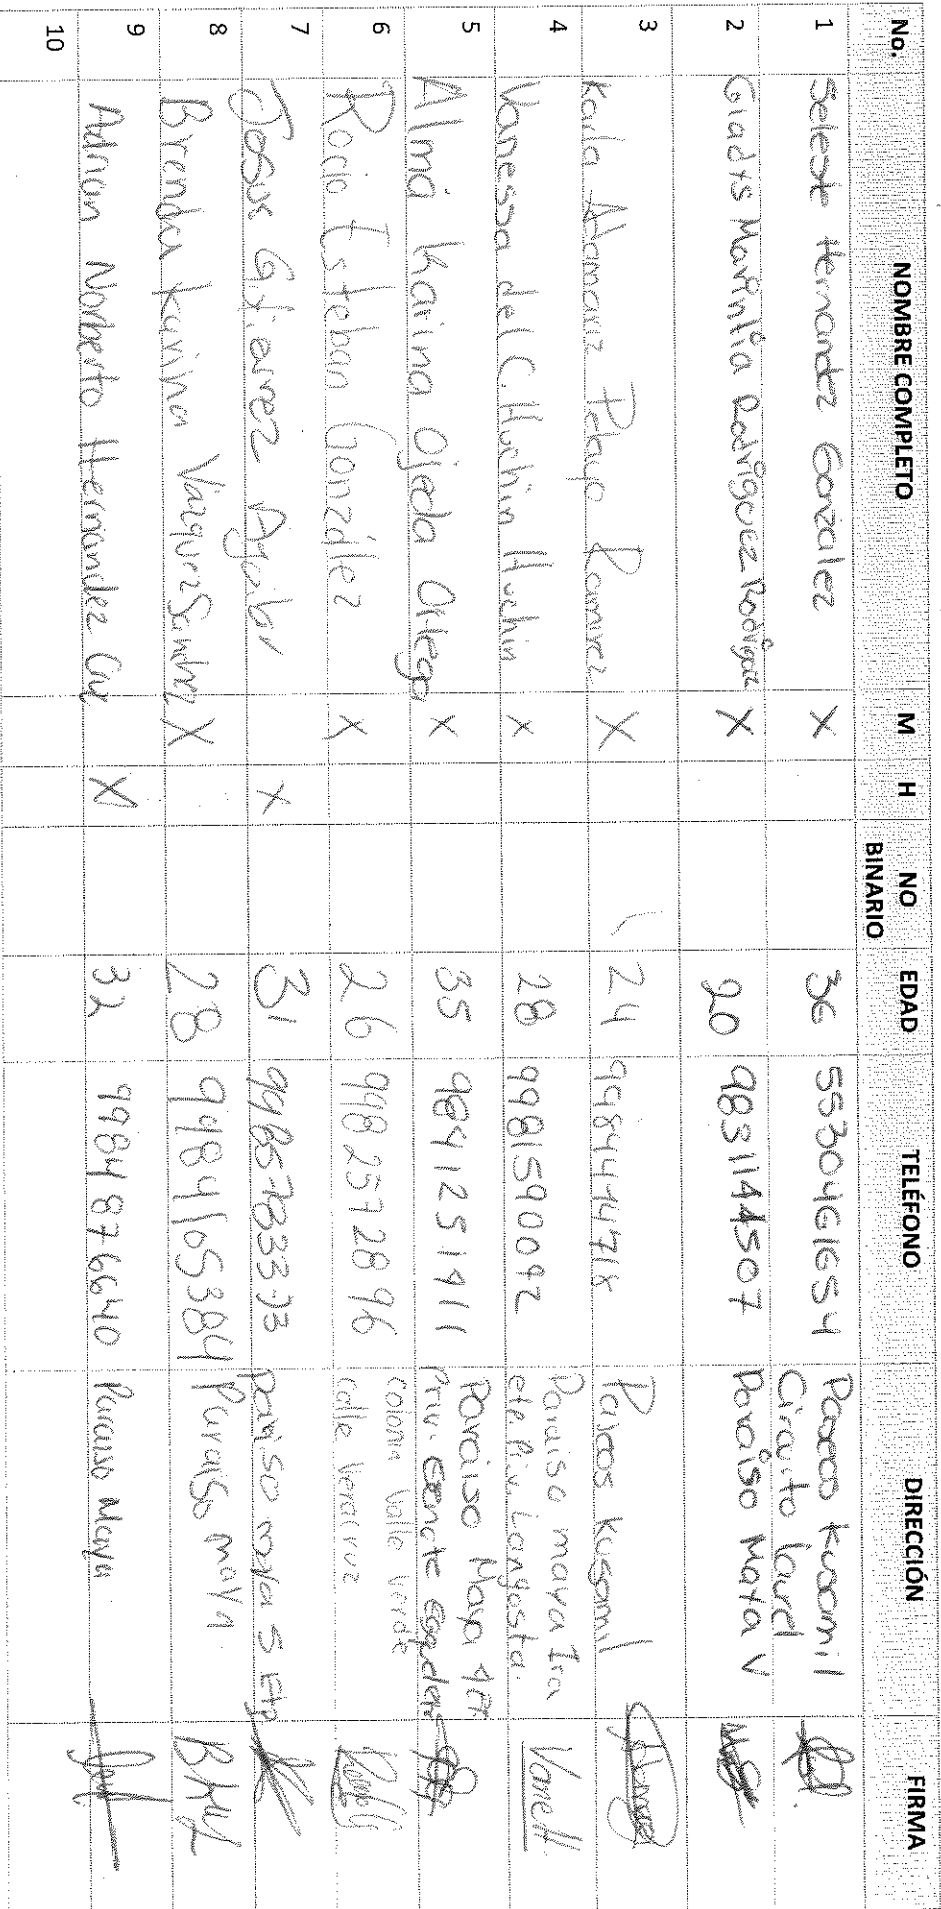 No. NOMBRE COMPLETO M H NO BINARIO EDAD TELÉFONO DIRECCIÓN FIRMA
1 Seleste Hernandez Gonzalez X 36 5530461654 Paseos Kusamil
Circuito laurel
2 Gladys Marinlia Rodriguez Rodriguez X 20 9831144507 Paraiso Maya V
3 Karla Adamariz Pelayo Ramirez X 24 9984444718 Paseos Kusamil
4 Vanessa del C. Huchin Huchin X 28 9981590092 Paraiso maya 1ra
etp Priv. Langosta. Vane H.
5 Alma Karina Ojeda Ortega X 35 9841251911 Paraiso Maya 4
Priv. cenote
6 Rocio Esteban González X 26 9982572896 Colonia Valle Verde
Calle Veracruz
7 Josue Gutierrez X 31 paraiso maya 5 Etp
8 Brenda Karina Vázquez Sanchez X 28 9984165384 Paraiso maya
9 Adrian Norberto Hernandez X 32 9984876640 Paraiso Maya
10